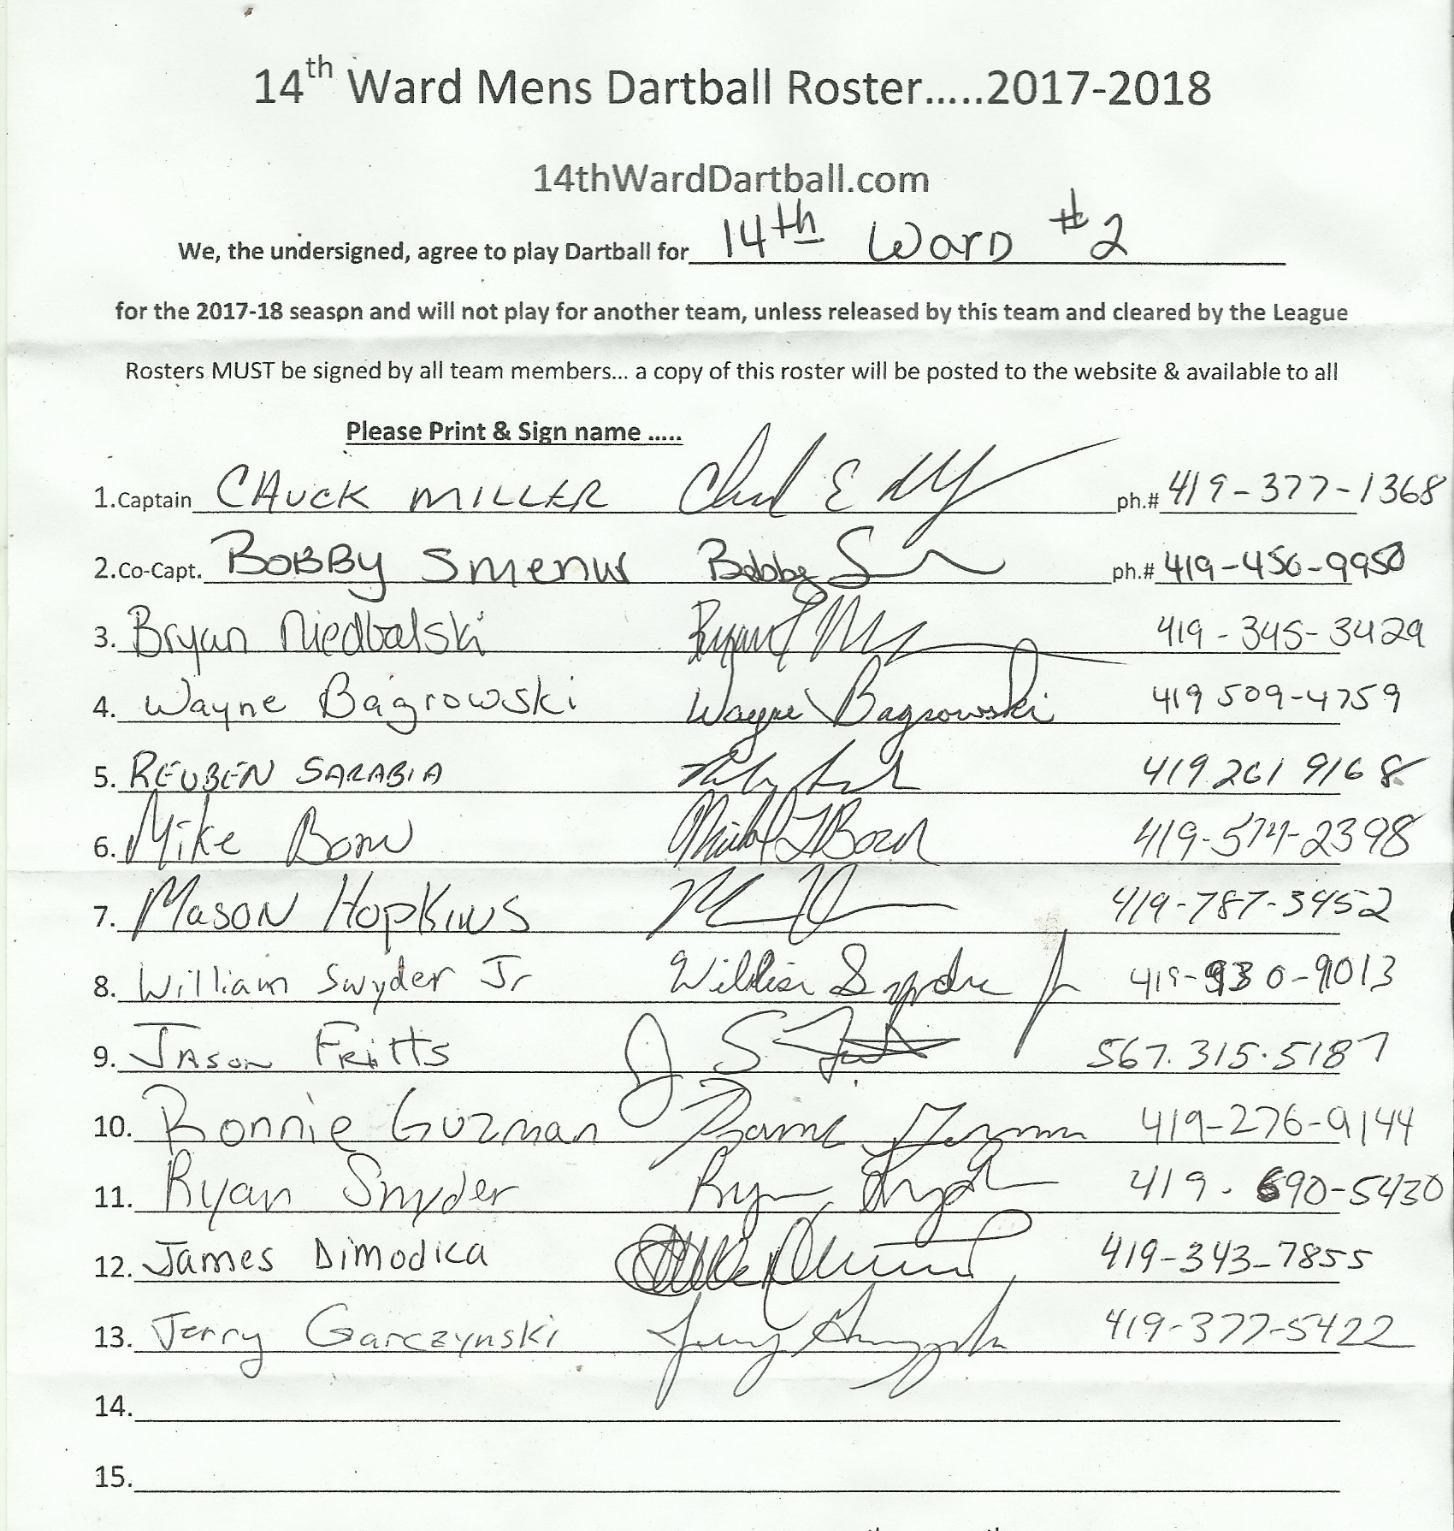 14th Ward Mens Dartball Roster.....2017-2018
14thWardDartball.com
We, the undersigned, agree to play Dartball for 14th Ward #2
for the 2017-18 season and will not play for another team, unless released by this team and cleared by the League
Rosters MUST be signed by all team members... a copy of this roster will be posted to the website & available to all
Please Print & Sign name .....
1.Captain CHUCK MILLER ph.# 419-377-1368
2.Co-Capt. BOBBY Bobby ph.# 419-456-9950
3. Bryan Niedbalski Bryan 419-345-3429
4. Wayne Bagrowski Wayne Bagrowski 419 509-4759
5. REUBEN SARABIA 419 261 9168
6. Mike Born Born 419-574-2398
7. MASON HOPKINS 419-787-3452
8. William Snyder Jr William Snyder Jr 419-930-9013
9. JASON FRITTS J S 567.315.5187
10. Ronnie Guzman Ronnie Guzman 419-276-9144
11. Ryan Snyder Ryan Snyder 419. 690-5430
12. James DiModica 419-343-7855
13. Jerry Garczynski Jerry 419-377-5422
14.
15.